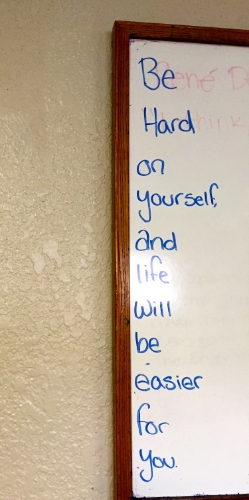 Be
Hard
on
yourself,
and
life
will
be
easier
for
you.
René D
think